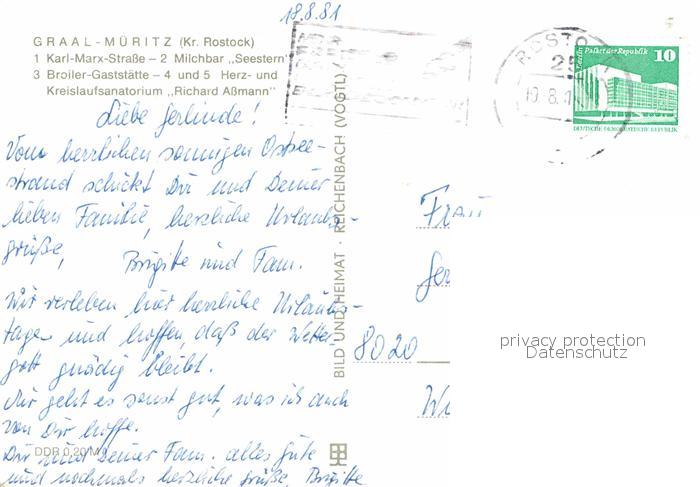 18.8.81
GRAAL-MÜRITZ (Kr. Rostock)
1 Karl-Marx-Straße – 2 Milchbar „Seestern
3 Broiler-Gaststätte – 4 und 5 Herz- und
Kreislaufsanatorium „Richard Aßmann"
Liebe Gerlinde!
Vom herrlichen sonnigen Ostsee-
strand schickt Dir und Deiner
lieben Familie, herzliche Urlaubs-
grüße, Brigitte und Fam.
Wir verleben hier herrliche Urlaubs-
tage und hoffen, daß der Wetter-
gott gnädig bleibt.
Mir geht es sonst gut, was ich auch
von Dir hoffe.
Dir und Deiner Fam. alles gute
und nochmals herzliche grüße, Brigitte
DDR 0,20 M
BILD UND HEIMAT · REICHENBACH (VOGTL)
ROSTO
25
Berlin Palast der Republik
10
DEUTSCHE DEMOKRATISCHE REPUBLIK
Frau
Ger
8020
privacy protection
Datenschutz